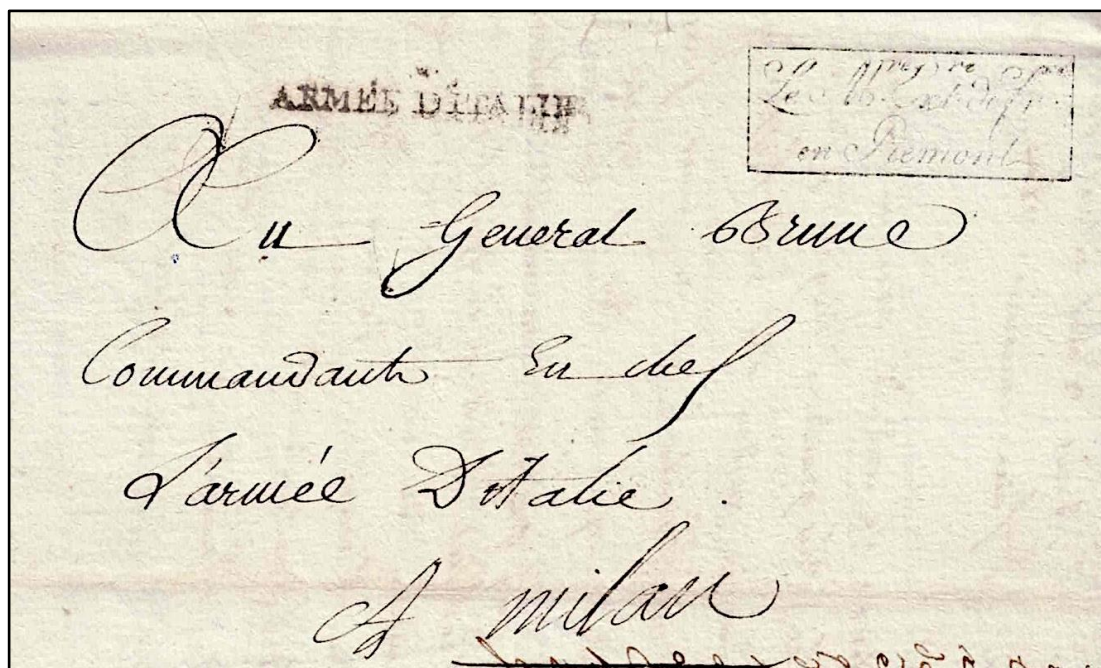 ARMÉE D'ITALIE
en Piémont
Au General Brune
Commandant En chef
L'armée D'Italie.
A Milan